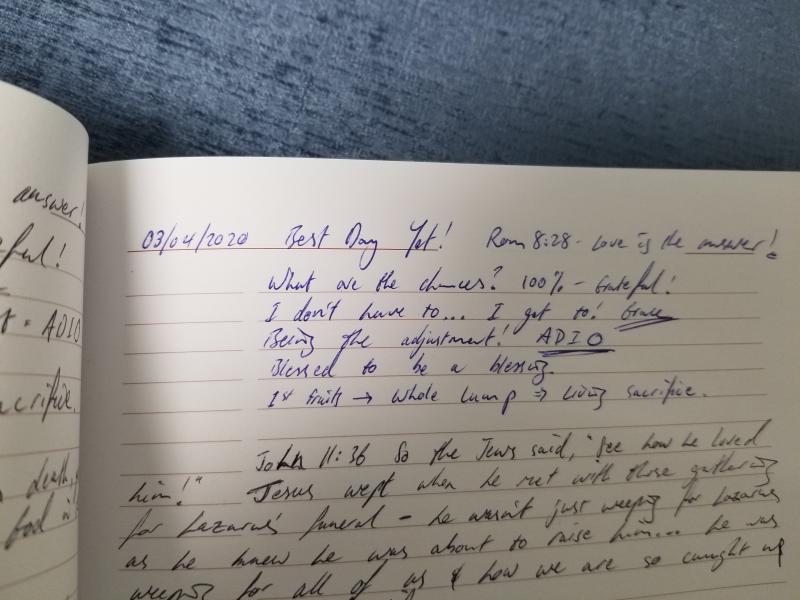 answer!
ful!
ADIO
acrifice.
death,
God is
03/04/2020 Best Day Yet! Rom 8:28 - Love is the answer!
What are the chances? 100% - Grateful!
I don't have to... I get to! Grace
Being the adjustment! ADIO
Blessed to be a blessing.
1st fruits → whole lump ⇒ living sacrifice.
John 11:36 So the Jews said, "See how he loved
him!" Jesus wept when he met with those gathering
for Lazarus' funeral - he wasn't just weeping for Lazarus
as he knew he was about to raise him... he was
weeping for all of us & how we are so caught up